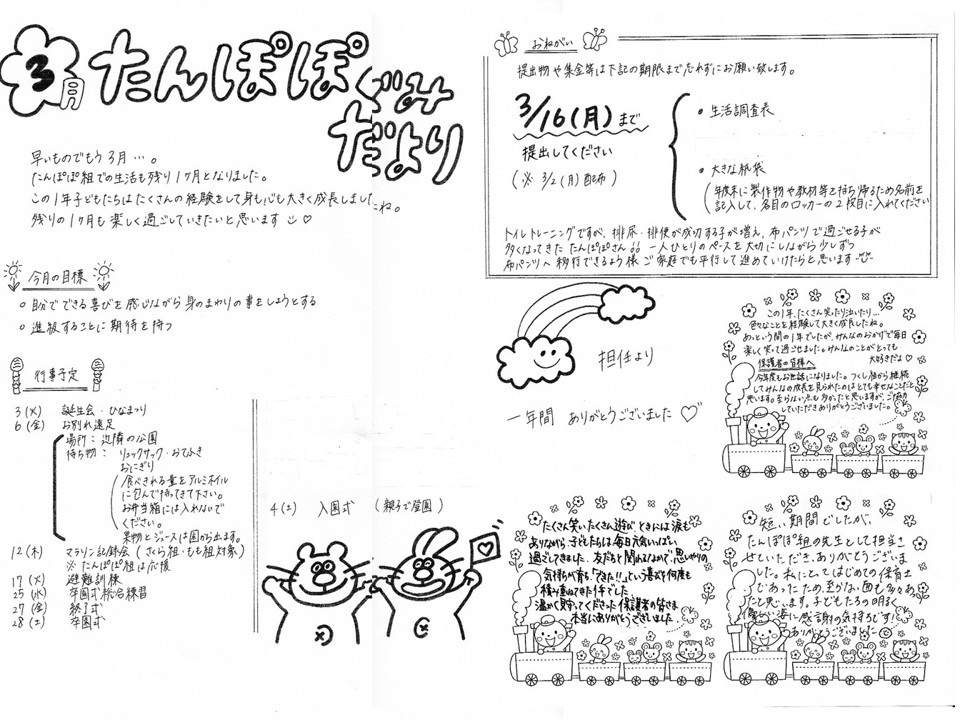 3月 たんぽぽぐみ
だより
早いものでもう3月…。
たんぽぽ組での生活も残り1ヶ月となりました。
この1年子どもたちはたくさんの経験をして身も心も大きく成長しましたね。
残りの1ヶ月も楽しく過ごしていきたいと思います♡
今月の目標
○ 自分でできる喜びを感じながら身のまわりの事をしようとする
○ 進級することに期待を持つ
行事予定
3(火) 誕生会・ひなまつり
6(金) お別れ遠足
場所：近隣の公園
持ち物：リュックサック・おてふき
おにぎり
(食べきれる量をアルミホイル
に包んで持ってきて下さい。
お弁当箱には入れないで
ください。
果物とジュースは園から出ます。
12(木) マラソン記録会(さくら組・もも組対象)
※たんぽぽ組は応援
17(火) 避難訓練
25(水) 卒園式総合練習
27(金) 終了式
28(土) 卒園式
4(土) 入園式 (親子で登園)
おねがい
提出物や集金等は下記の期限まで忘れずにお願い致します。
3/16(月)まで
提出してください
(※ 3/2(月)配布)
• 生活調査表
• 大きな紙袋
(年度末に製作物や教材等を持ち帰るため名前を
記入して、各自のロッカーの2段目に入れてください
トイレトレーニングですが、排尿・排便が成功する子が増え、布パンツで過ごせる子が
多くなってきたたんぽぽさん 一人ひとりのペースを大切にしながら少しずつ
布パンツへ移行できるよう様ご家庭でも平行して進めていけたらと思います
担任より
一年間 ありがとうございました♡
この1年、たくさん笑ったり泣いたり…
色々なことを経験して大きく成長したね。
あっという間の1年でしたが、みんなのおかげで毎日
楽しく笑って過ごせました。みんなのことがとっても
大好きだよ♡
保護者の皆様へ
今年度もお世話になりました。つくし組から継続
してみんなの成長を見られたのはとても幸せなことだと
思います。至らない点も多かったと思いますが、ご協力
していただきありがとうございました。
たくさん笑い たくさん遊び ときには涙も
ありながら、子どもたちは毎日元気いっぱい
過ごしてきました。友だちと関わるなかで、思いやりの
気持ちが育ち、「できた!!」という喜びを何度も
積み重ねてきた1年でした
温かく見守ってくださった保護者の皆さま
本当にありがとうございました
短い期間でしたが、
たんぽぽ組の先生として担当さ
せていただき、ありがとうございま
した。私にとってはじめての保育士
であったため、至らない面も多々あっ
たと思います。子どもたちの明るく
優しい姿に感謝の気持ちです!
ありがとうございました